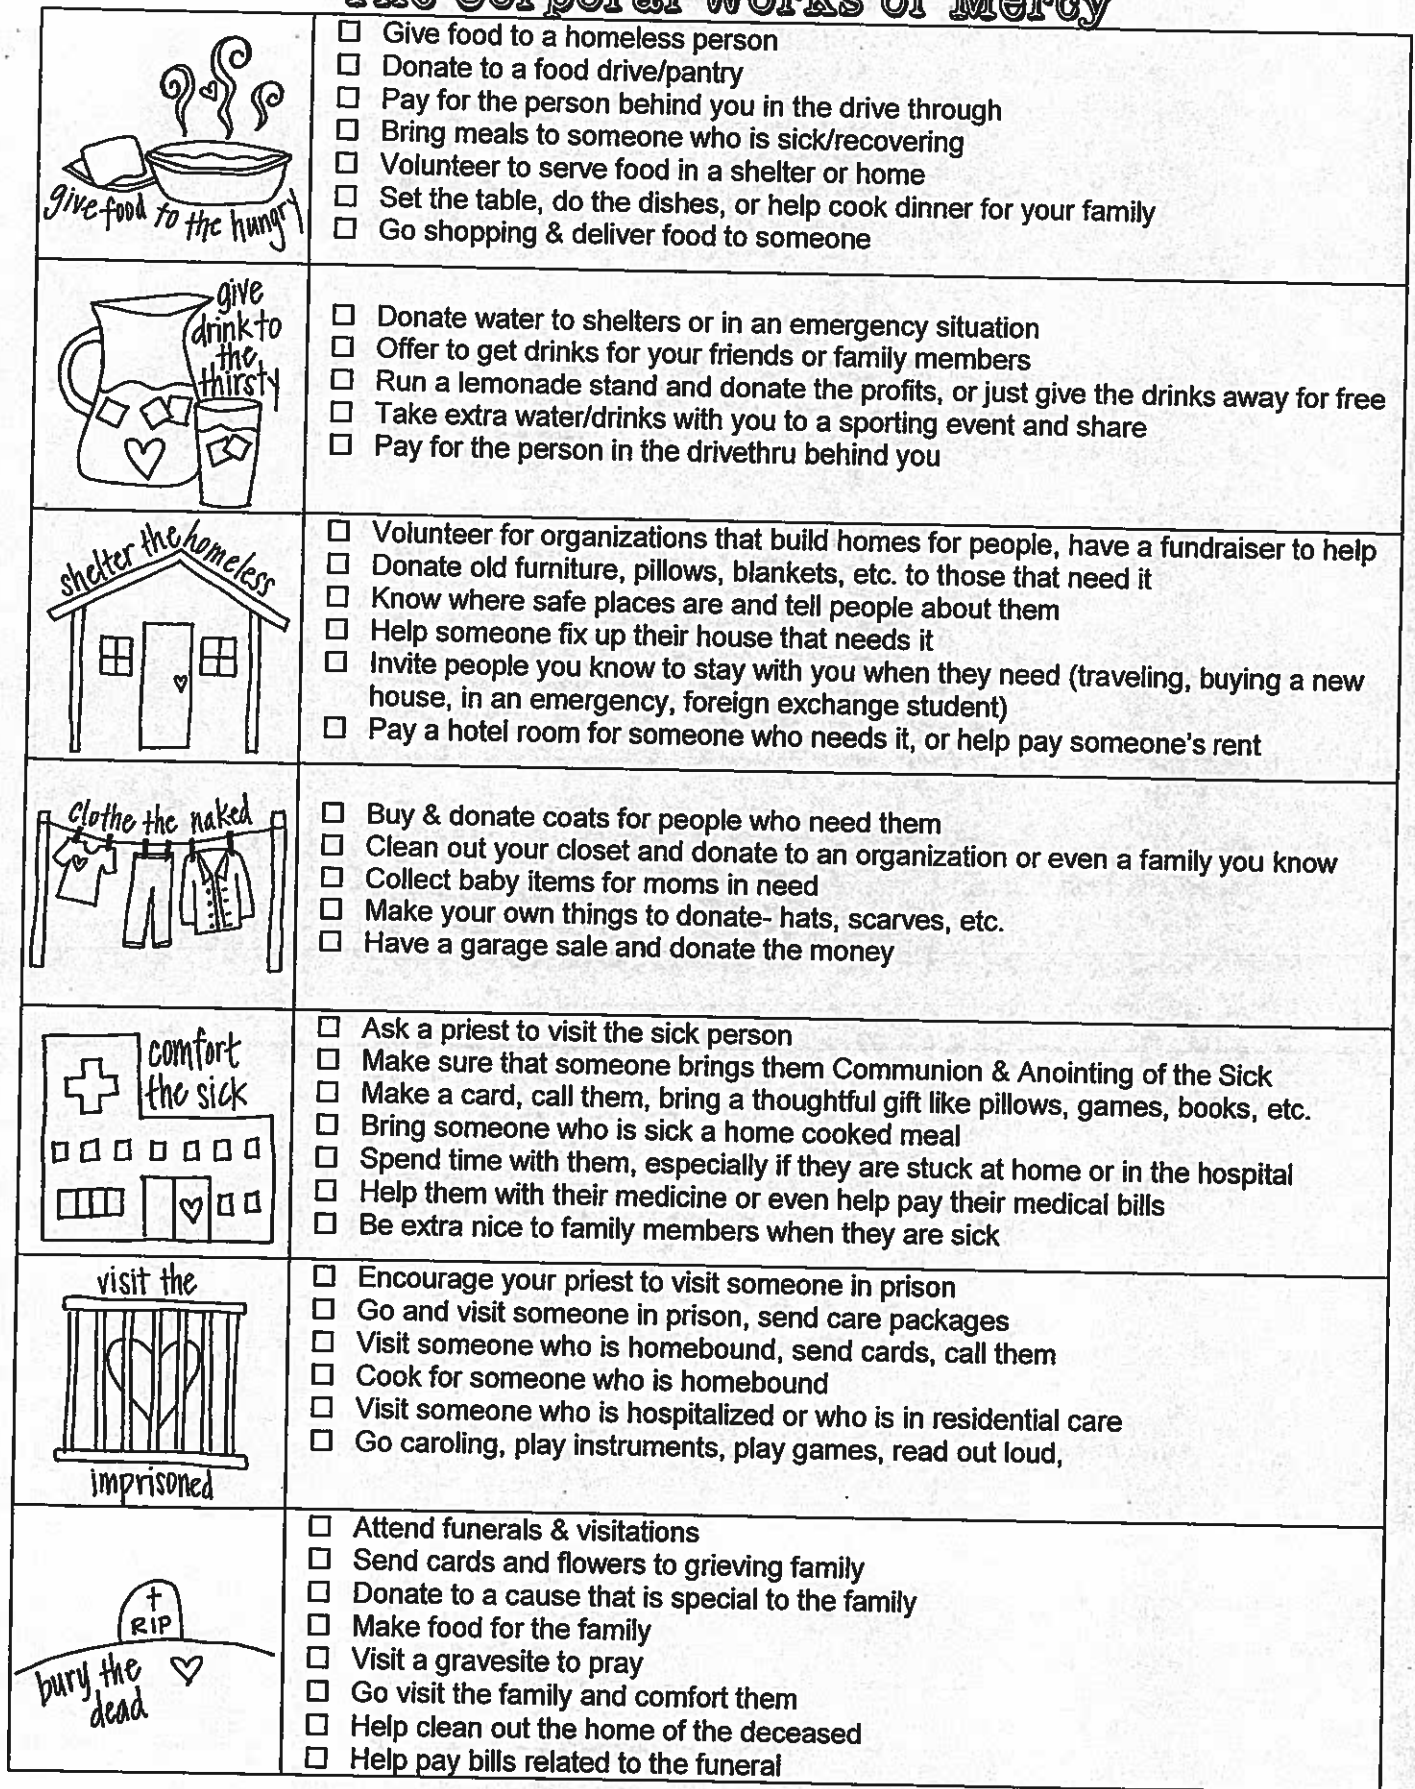 The Corporal Works of Mercy
give food to the hungry
☐ Give food to a homeless person
☐ Donate to a food drive/pantry
☐ Pay for the person behind you in the drive through
☐ Bring meals to someone who is sick/recovering
☐ Volunteer to serve food in a shelter or home
☐ Set the table, do the dishes, or help cook dinner for your family
☐ Go shopping & deliver food to someone
give
drink to
the
thirsty
☐ Donate water to shelters or in an emergency situation
☐ Offer to get drinks for your friends or family members
☐ Run a lemonade stand and donate the profits, or just give the drinks away for free
☐ Take extra water/drinks with you to a sporting event and share
☐ Pay for the person in the drivethru behind you
shelter the homeless
☐ Volunteer for organizations that build homes for people, have a fundraiser to help
☐ Donate old furniture, pillows, blankets, etc. to those that need it
☐ Know where safe places are and tell people about them
☐ Help someone fix up their house that needs it
☐ Invite people you know to stay with you when they need (traveling, buying a new
house, in an emergency, foreign exchange student)
☐ Pay a hotel room for someone who needs it, or help pay someone's rent
clothe the naked
☐ Buy & donate coats for people who need them
☐ Clean out your closet and donate to an organization or even a family you know
☐ Collect baby items for moms in need
☐ Make your own things to donate- hats, scarves, etc.
☐ Have a garage sale and donate the money
comfort
the sick
☐ Ask a priest to visit the sick person
☐ Make sure that someone brings them Communion & Anointing of the Sick
☐ Make a card, call them, bring a thoughtful gift like pillows, games, books, etc.
☐ Bring someone who is sick a home cooked meal
☐ Spend time with them, especially if they are stuck at home or in the hospital
☐ Help them with their medicine or even help pay their medical bills
☐ Be extra nice to family members when they are sick
visit the
imprisoned
☐ Encourage your priest to visit someone in prison
☐ Go and visit someone in prison, send care packages
☐ Visit someone who is homebound, send cards, call them
☐ Cook for someone who is homebound
☐ Visit someone who is hospitalized or who is in residential care
☐ Go caroling, play instruments, play games, read out loud,
RIP
bury the
dead
☐ Attend funerals & visitations
☐ Send cards and flowers to grieving family
☐ Donate to a cause that is special to the family
☐ Make food for the family
☐ Visit a gravesite to pray
☐ Go visit the family and comfort them
☐ Help clean out the home of the deceased
☐ Help pay bills related to the funeral